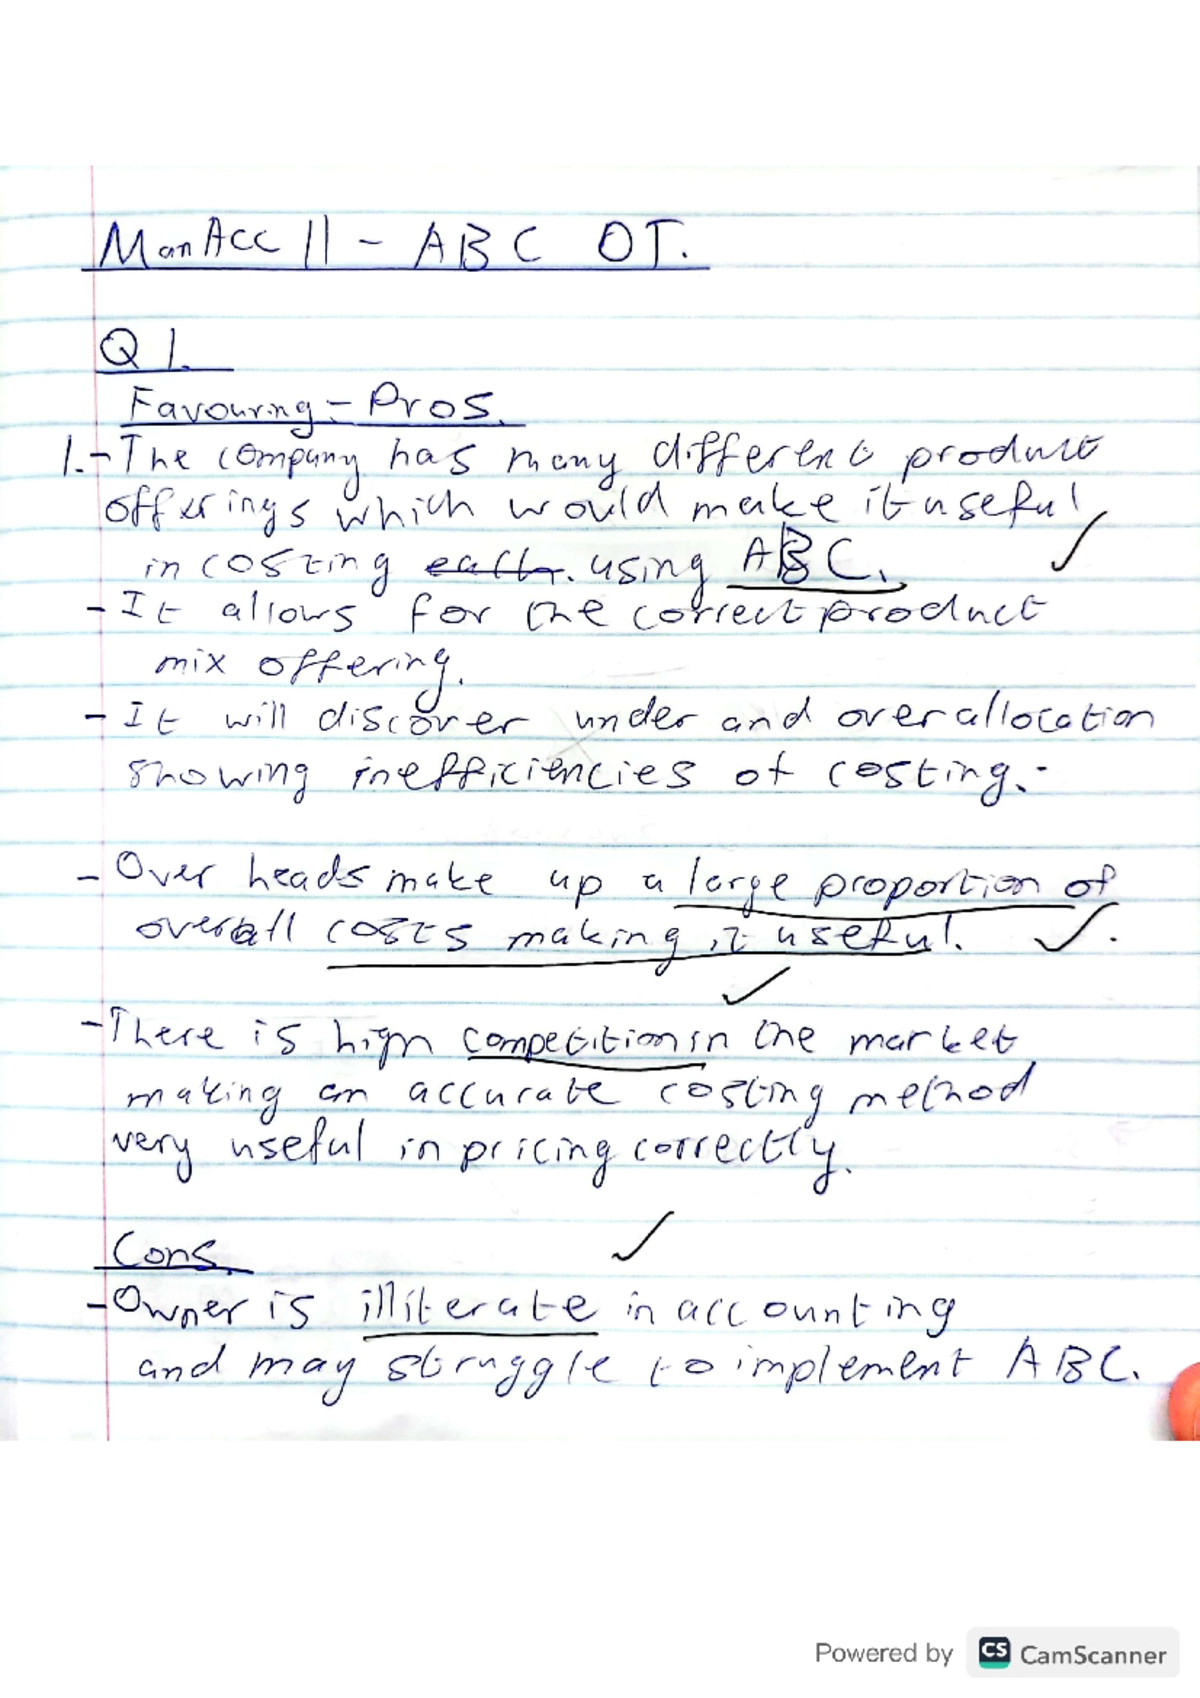 ManAcc II - ABC OT.
Q1.
Favouring - Pros.
1. - The company has many different product
offerings which would make it useful
in costing each. using ABC.
- It allows for the correct product
mix offering.
- It will discover under and over allocation
showing inefficiencies of costing.
- Over heads make up a large proportion of
overall costs making it useful.
- There is high competition in the market
making an accurate costing method
very useful in pricing correctly.
Cons.
- Owner is illiterate in accounting
and may struggle to implement ABC.
Powered by CS CamScanner